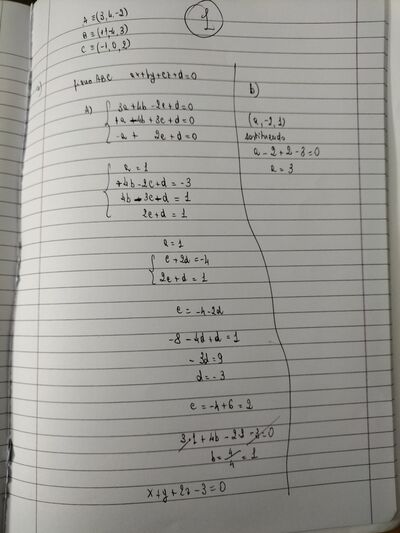 A ≡ (3, 4, -2)
1
B ≡ (+1, -4, 3)
C ≡ (-1, 0, 2)
a) piano ABC ax+by+cz+d=0
A) 3a+4b-2c+d=0
+a-4b+3c+d=0
-a+ 2c+d=0
a=1
+4b-2c+d=-3
4b-3c-d=1
2c+d=1
a=1
c+2d=-4
2c+d=1
c=-4-2d
-8-4d+d=1
-3d=9
d=-3
c=-4+6=2
3·1+4b-2·2-3=0
b=4/4=1
x+y+2z-3=0
b)
(a,-2,1)
sostituendo
a-2+2-3=0
a=3